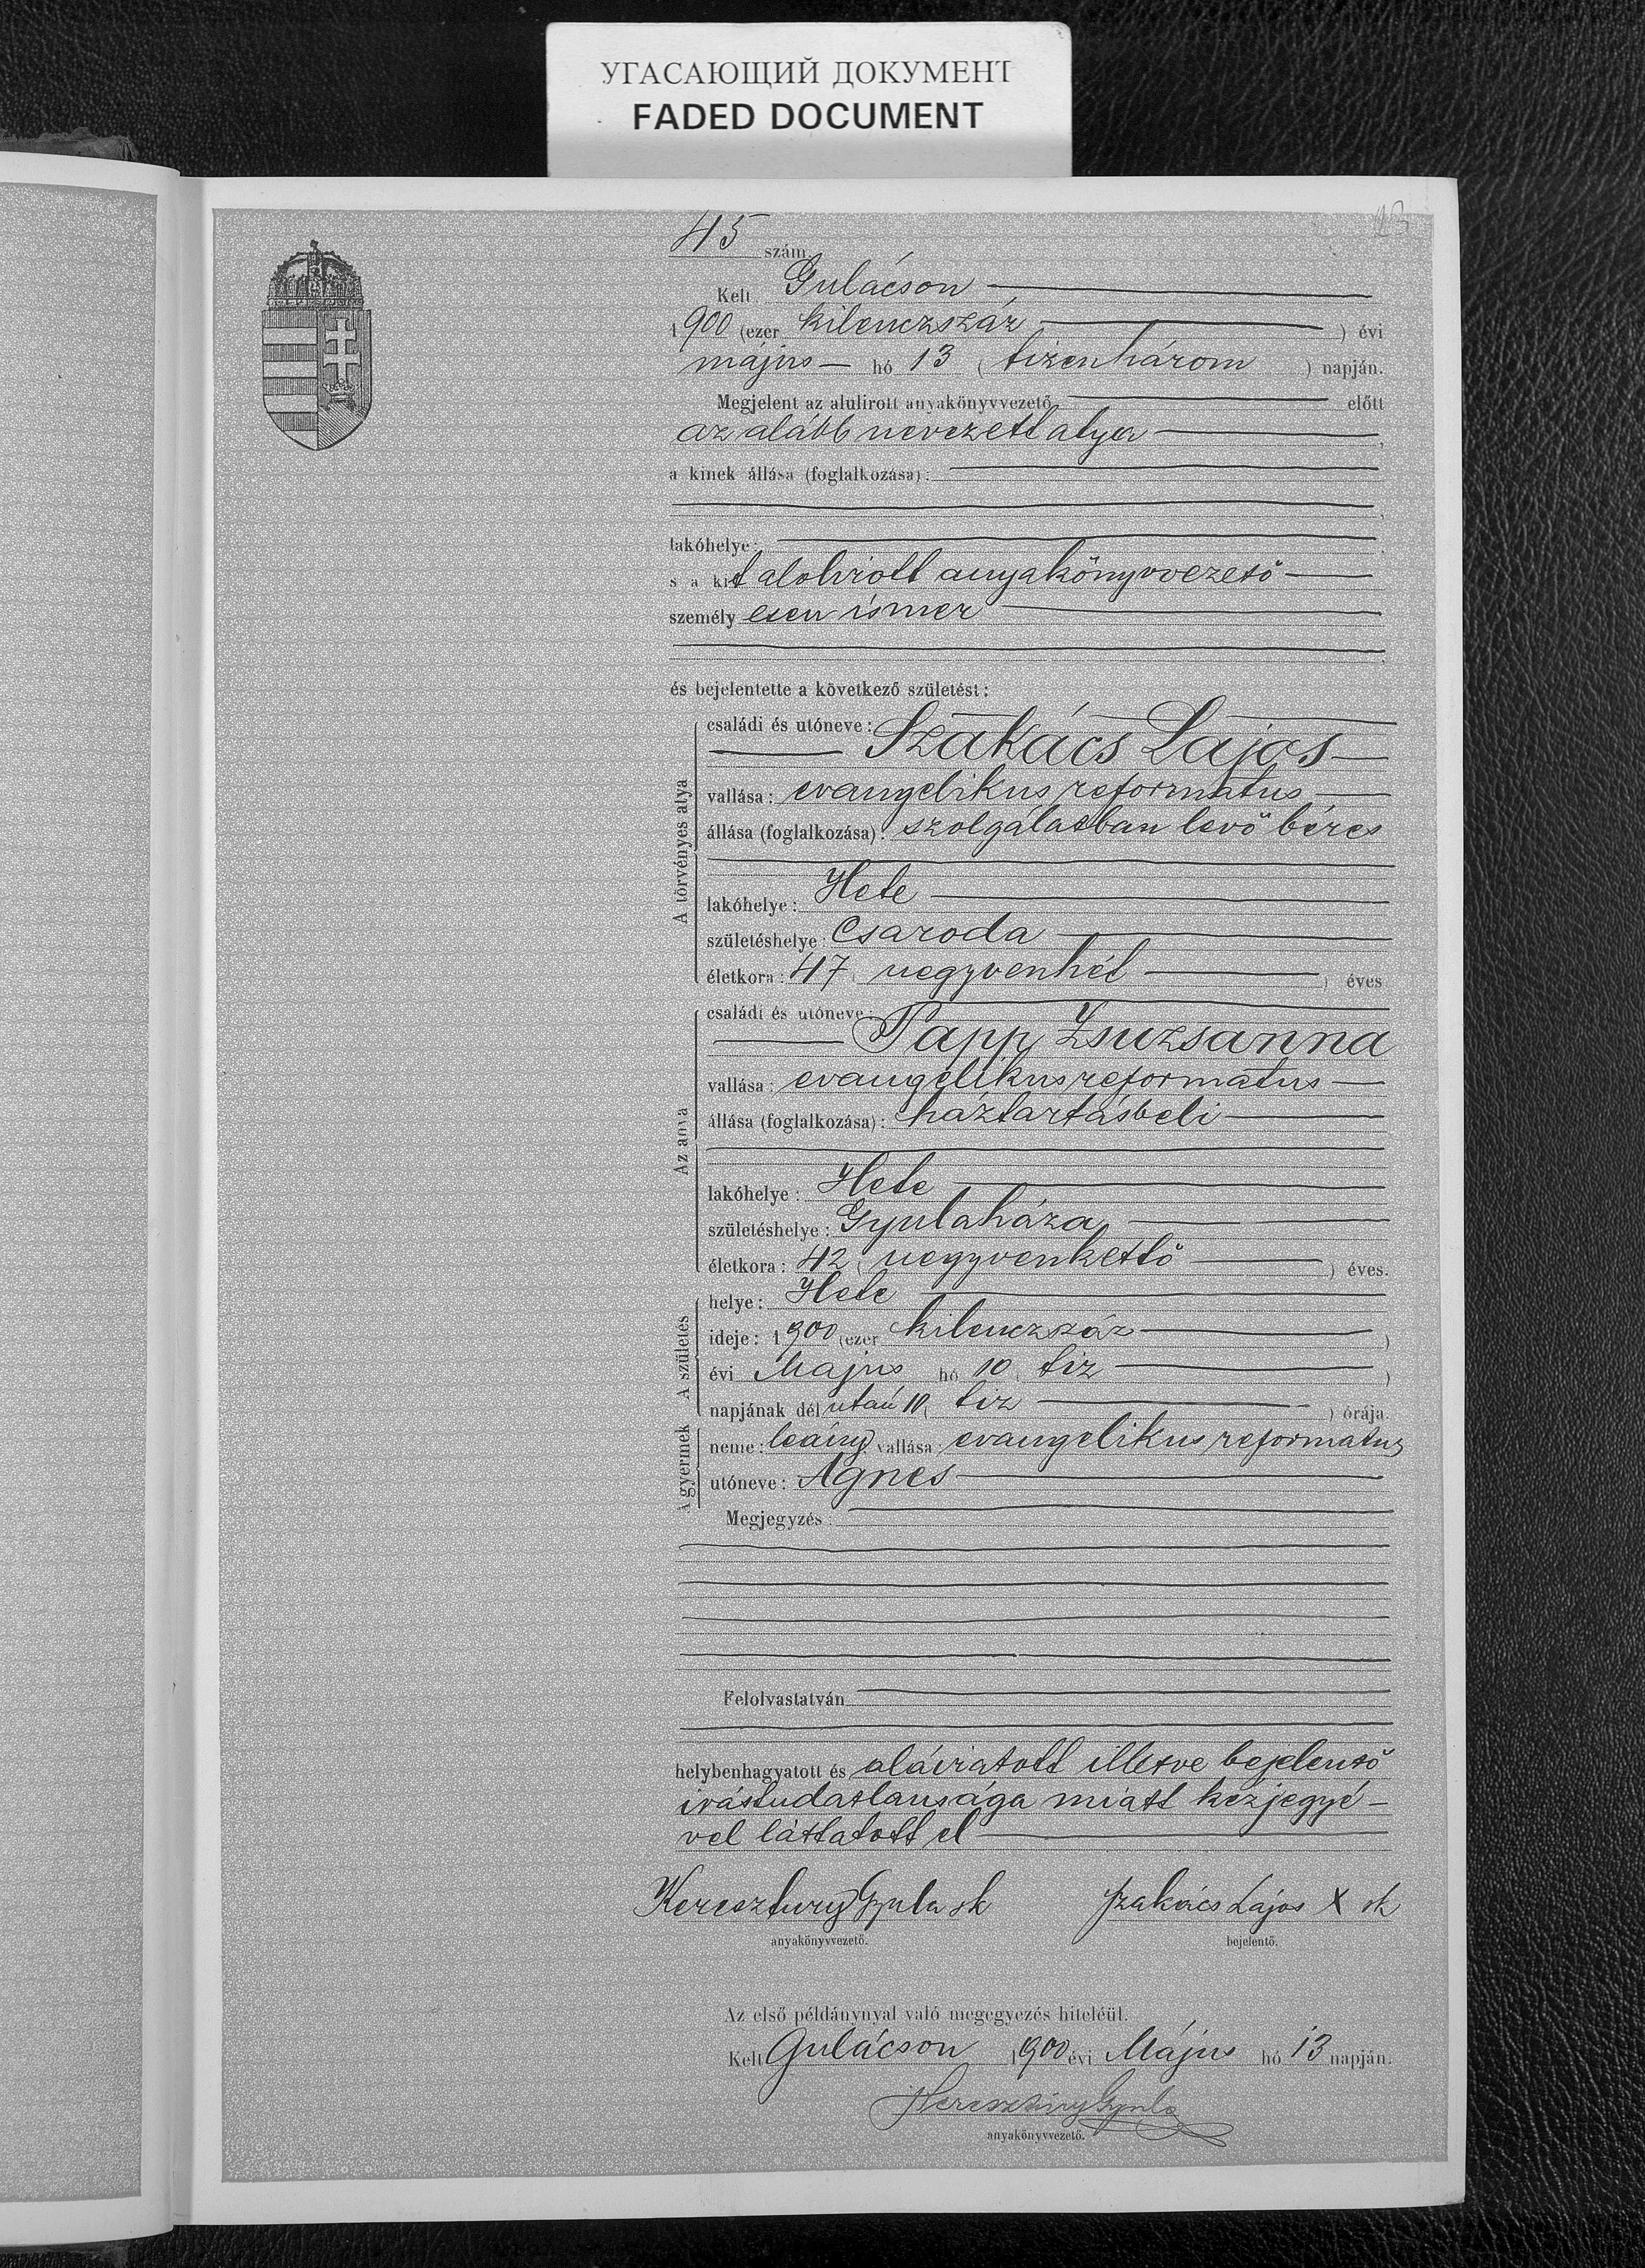 УГАСАЮЩИЙ ДОКУМЕНТ
FADED DOCUMENT
45 szám.
Kelt Gulácson
1900 (ezer kilenczszáz ) évi
május hó 13 ( tizenhárom ) napján.
Megjelent az alulirott anyakönyvvezető előtt
az alább nevezett atya ,
a kinek állása (foglalkozása):
lakóhelye:
s a kit alolirott anyakönyvvezető
személyesen ismer
és bejelentette a következő születést:
A törvényes atya
családi és utóneve:
Szakács Lajos
vallása: evangelikus reformatus
állása (foglalkozása): szolgálatban levő béres
lakóhelye: Hete
születéshelye: Csaroda
életkora: 47 ( negyvenhét ) éves
Az anya
családi és utóneve:
Papp Zsuzsanna
vallása: evangélikus reformatus
állása (foglalkozása): háztartásbeli
lakóhelye: Hete
születéshelye: Gyulaháza
életkora: 42 ( negyvenkettő ) éves.
A születés
helye: Hete
ideje: 1900 (ezer kilenczszáz )
évi Majus hó 10 ( tiz )
napjának délután 10 ( tiz ) órája.
A gyermek
neme: leány vallása: evangelikus reformatus
utóneve: Ágnes
Megjegyzés:
Felolvastatván
helybenhagyatott és aláiratott illetve bejelentő
irástudatlansága miatt kézjegyé-
vel láttatott el
Keresztury Gyula sk Szakács Lajos X sk
anyakönyvvezető. bejelentő.
Az első példánynyal való megegyezés hiteléül.
Kelt Gulácson 1900 évi Május hó 13 napján.
Keresztury Gyula
anyakönyvvezető.